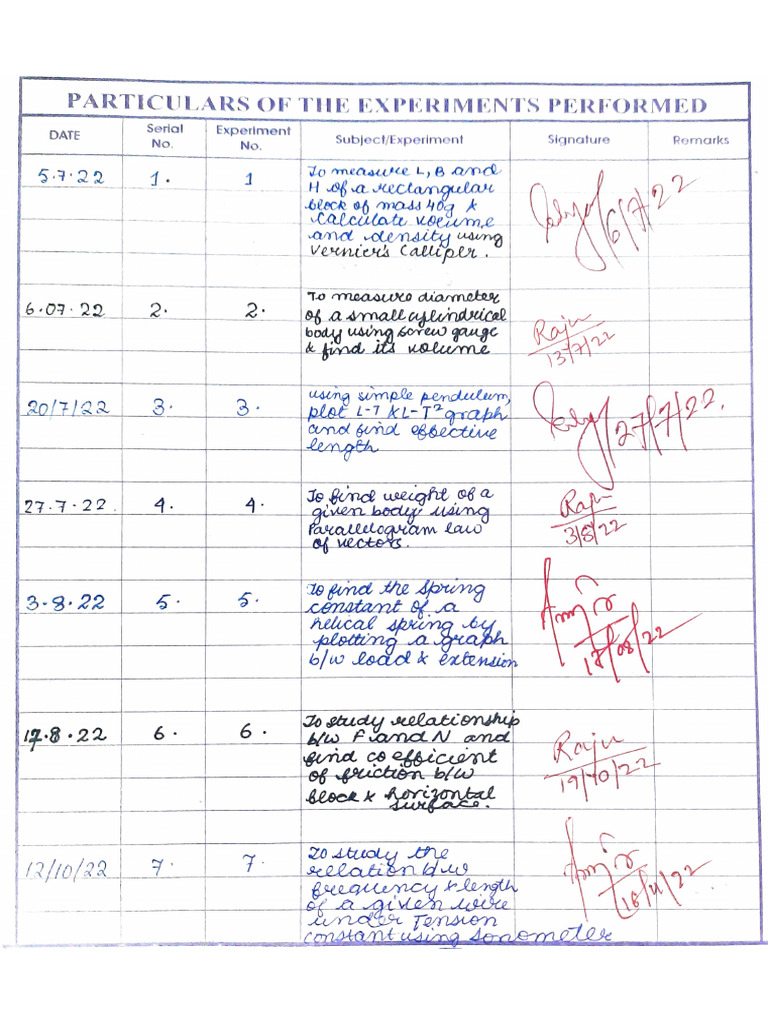 PARTICULARS OF THE EXPERIMENTS PERFORMED
DATE Serial No. Experiment No. Subject/Experiment Signature Remarks
5.7.22 1. 1 To measure L, B and
H of a rectangular
block of mass 40g &
calculate volume
and density using
Vernier's Calliper.
6/7/22
6.07.22 2. 2. To measure diameter
of a small cylindrical
body using screw gauge
& find its volume
Raju
13/7/22
20/7/22 3. 3. using simple pendulum,
plot L-T & L-T² graph
and find effective
length
27/7/22.
27.7.22. 4. 4. To find weight of a
given body using
Parallelogram law
of vectors.
Raju
3/8/22
3.8.22 5. 5. To find the spring
constant of a
helical spring by
plotting a graph
b/w load & extension
/08/22
17.8.22 6. 6. To study relationship
b/w F and N and
find co efficient
of friction b/w
block & horizontal
surface.
Raju
19/10/22
12/10/22 7. 7. To study the
relation b/w
frequency & length
of a given wire
under Tension
constant using sonometer
16/11/22